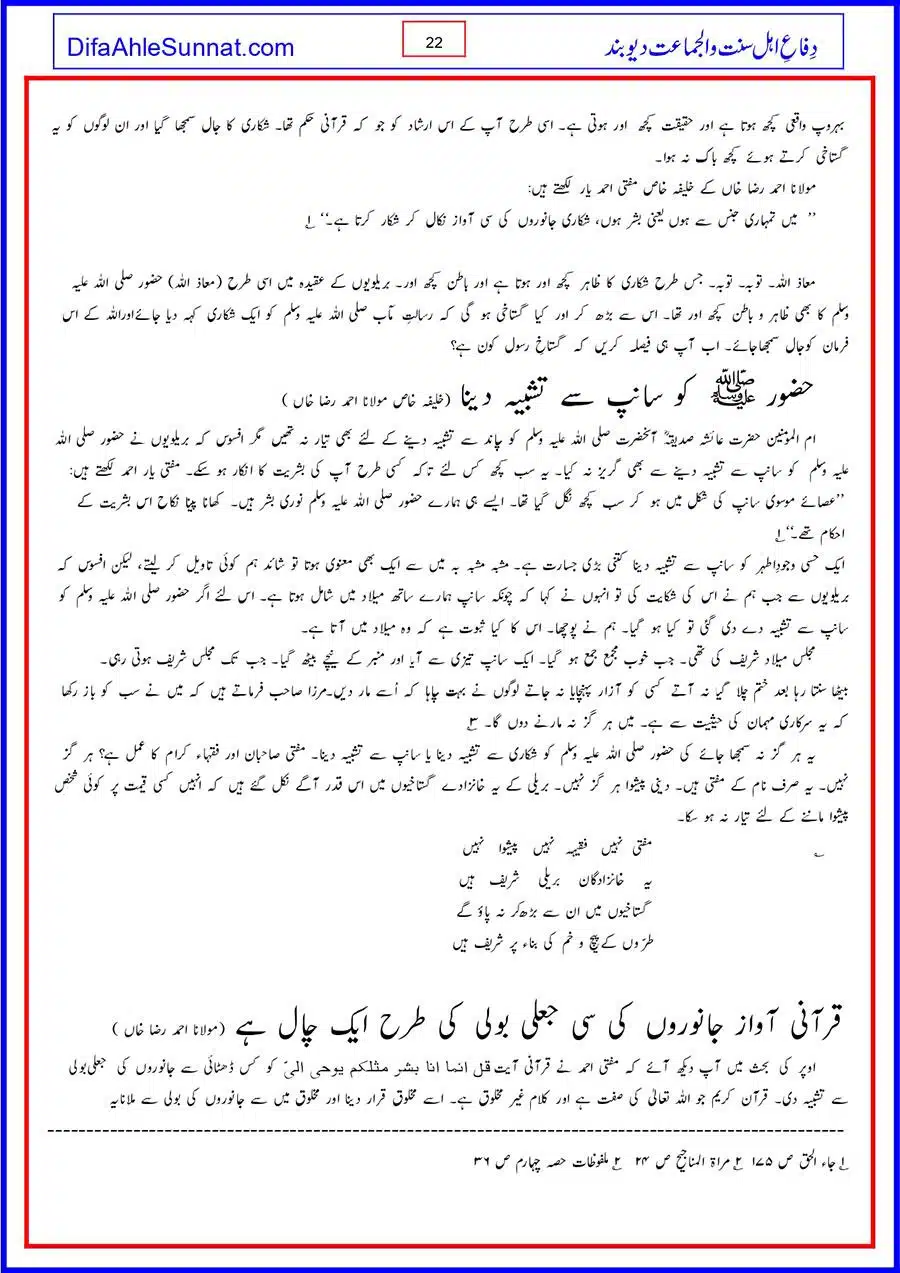 DifaAhleSunnat.com
22
دِفاعِ اہل سنت والجماعت دیوبند
بہروپ واقعی کچھ ہوتا ہے اور حقیقت کچھ اور ہوتی ہے۔ اسی طرح آپ کے اس ارشاد کو جو کہ قرآنی حکم تھا۔ شکاری کا جال سمجھا گیا اور ان لوگوں کو یہ
گستاخی کرتے ہوئے کچھ باک نہ ہوا۔
مولانا احمد رضا خاں کے خلیفہ خاص مفتی احمد یار لکھتے ہیں:
’’ میں تمہاری جنس سے ہوں یعنی بشر ہوں، شکاری جانوروں کی سی آواز نکال کر شکار کرتا ہے۔‘‘ ۱؎
معاذ اللہ۔ توبہ۔ توبہ۔ جس طرح شکاری کا ظاہر کچھ اور ہوتا ہے اور باطن کچھ اور۔ بریلویوں کے عقیدہ میں اسی طرح (معاذ اللہ) حضور صلی اللہ علیہ
وسلم کا بھی ظاہر و باطن کچھ اور تھا۔ اس سے بڑھ کر اور کیا گستاخی ہو گی کہ رسالتِ مآب صلی اللہ علیہ وسلم کو ایک شکاری کہہ دیا جائےاوراللہ کے اس
فرمان کوجال سمجھاجائے۔ اب آپ ہی فیصلہ کریں کہ گستاخِ رسول کون ہے؟
حضور ﷺ کو سانپ سے تشبیہ دینا (خلیفہ خاص مولانا احمد رضا خاں )
ام المؤمنین حضرت عائشہ صدیقہؓ آنحضرت صلی اللہ علیہ وسلم کو چاند سے تشبیہ دینے کے لئے بھی تیار نہ تھیں مگر افسوس کہ بریلویوں نے حضور صلی اللہ
علیہ وسلم کو سانپ سے تشبیہ دینے سے بھی گریز نہ کیا۔ یہ سب کچھ کس لئے تاکہ کسی طرح آپ کی بشریت کا انکار ہو سکے۔ مفتی یار احمد لکھتے ہیں:
’’عصائے موسوی سانپ کی شکل میں ہو کر سب کچھ نگل گیا تھا۔ ایسے ہی ہمارے حضور صلی اللہ علیہ وسلم نوری بشر ہیں۔ کھانا پینا نکاح اس بشریت کے
احکام تھے۔‘‘ ۱؎
ایک حسی وجودِاطہر کو سانپ سے تشبیہ دینا کتنی بڑی جسارت ہے۔ مشبہ مشبہ بہ میں سے ایک بھی معنوی ہوتا تو شائد ہم کوئی تاویل کر لیتے، لیکن افسوس کہ
بریلویوں سے جب ہم نے اس کی شکایت کی تو انہوں نے کہا کہ چونکہ سانپ ہمارے ساتھ میلاد میں شامل ہوتا ہے۔ اس لئے اگر حضور صلی اللہ علیہ وسلم کو
سانپ سے تشبیہ دے دی گئی تو کیا ہو گیا۔ ہم نے پوچھا۔ اس کا کیا ثبوت ہے کہ وہ میلاد میں آتا ہے۔
مجلس میلاد شریف کی تھی۔ جب خوب مجمع جمع ہو گیا۔ ایک سانپ تیزی سے آیا اور منبر کے نیچے بیٹھ گیا۔ جب تک مجلس شریف ہوتی رہی۔
بیٹھا سنتا رہا بعد ختم چلا گیا نہ آتے کسی کو آزار پہنچایا نہ جاتے لوگوں نے بہت چاہا کہ اُسے مار دیں۔مرزا صاحب فرماتے ہیں کہ میں نے سب کو باز رکھا
کہ یہ سرکاری مہمان کی حیثیت سے ہے۔ میں ہر گز نہ مارنے دوں گا۔ ۳؎
یہ ہر گز نہ سمجھا جائے کی حضور صلی اللہ علیہ وسلم کو شکاری سے تشبیہ دینا یا سانپ سے تشبیہ دینا۔ مفتی صاحبان اور فقہاء کرام کا عمل ہے؟ ہر گز
نہیں۔ یہ صرف نام کے مفتی ہیں۔ دینی پیشوا ہر گز نہیں۔ بریلی کے یہ خانزادے گستاخیوں میں اس قدر آگے نکل گئے ہیں کہ انہیں کسی قیمت پر کوئی شخص
پیشوا ماننے کے لئے تیار نہ ہو سکا۔
؎ مفتی نہیں فقیہہ نہیں پیشوا نہیں
یہ خانزادگان بریلی شریف ہیں
گستاخیوں میں ان سے بڑھ‌کر نہ پاؤ گے
طرّوں کے پیچ و خم کی بناء پر شریف ہیں
قرآنی آواز جانوروں کی سی جعلی بولی کی طرح ایک چال ہے (مولانا احمد رضا خاں )
اوپر کی بحث میں آپ دیکھ آئے کہ مفتی احمد نے قرآنی آیت قل انما انا بشر مثلکم یوحی الیّ کو کس ڈھٹائی سے جانوروں کی جعلی‌بولی
سے تشبیہ دی۔ قرآن کریم جو اللہ تعالیٰ کی صفت ہے اور کلام غیر مخلوق ہے۔ اسے مخلوق قرار دینا اور مخلوق میں سے جانوروں کی بولی سے ملانایہ
۱؎ جاء الحق ص ۱۷۵ ۲؎ مراۃ المناجیح ص ۲۴ ۲؎ ملفوظات حصہ چہارم ص ۳۶